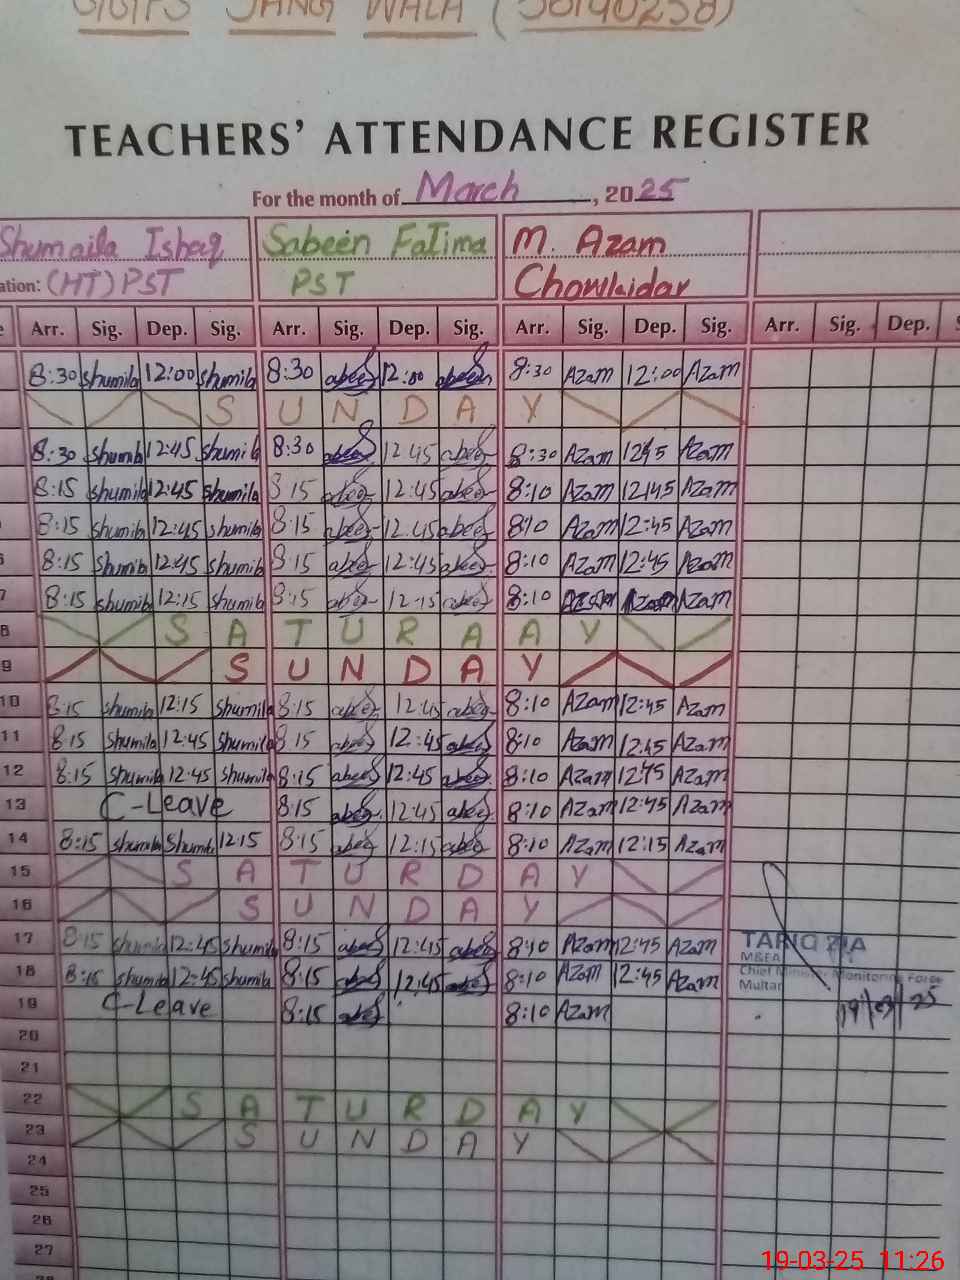 JANGI WALA
TEACHERS' ATTENDANCE REGISTER
For the month of March, 2025
Shumaila Ishaq Sabeen Fatima M. Azam
ation: (HT) PST PST Chowkidar
Arr. Sig. Dep. Sig. Arr. Sig. Dep. Sig. Arr. Sig. Dep. Sig. Arr. Sig. Dep.
8:30 shumila 12:00 shumila 8:30 12:00 8:30 Azam 12:00 Azam
S U N D A Y
8:30 shumila 12:45 shumila 8:30 12:45 8:30 Azam 1245 Azam
8:15 shumila 12:45 shumila 8:15 12:45 8:10 Azam 12:45 Azam
8:15 shumila 12:45 shumila 8:15 12:45 8:10 Azam 12:45 Azam
8:15 shumila 12:45 shumila 8:15 12:45 8:10 Azam 12:45 Azam
7 8:15 shumila 12:15 shumila 8:15 12:15 8:10 Azam
8 S A T U R A A Y
9 S U N D A Y
10 8:15 shumila 12:15 shumila 8:15 12:45 8:10 Azam 12:45 Azam
11 8:15 Shumila 12:45 Shumila 8:15 12:45 8:10 Azam 12:45 Azam
12 8:15 Shumila 12:45 Shumila 8:15 12:45 8:10 Azam 12:45 Azam
13 C-Leave 8:15 12:45 8:10 Azam 12:45 Azam
14 8:15 shumila Shumila 12:15 8:15 12:15 8:10 Azam 12:15 Azam
15 S A T U R D A Y
16 S U N D A Y
17 8:15 shumila 12:45 shumila 8:15 12:45 8:10 Azam 12:45 Azam
18 8:15 shumila 12:45 shumila 8:15 12:45 8:10 Azam 12:45 Azam
19 C-Leave 8:15 8:10 Azam
TARIQ ZIA
M&EA
Chief Minister Monitoring Force
Multan
19/03/25
20
21
22 S A T U R D A Y
23 S U N D A Y
24
25
26
27
19-03-25 11:26